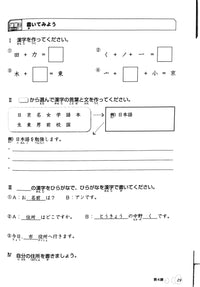 書いてみよう
Ⅰ 漢字を作ってください。
① 田 + 力 = □
② く + ノ + 一 = □
③ 木 + □ = 東
④ 亠 + □ + 小 = 京
Ⅱ から選んで漢字の言葉と文を作ってください。
日 京 名 女 学 語 本
生 東 男 前 校 国
例) 日本語
例) 日本語を勉強します。
Ⅲ の漢字をひらがなで、ひらがなを漢字で書いてください。
① A:お 名前 は? B:アンです。
② A: 住所 はどこですか。 B: とうきょう の中野 く です。
③ 今日、 市 役所 へ行きます。
Ⅳ 自分の住所を書きましょう。
29